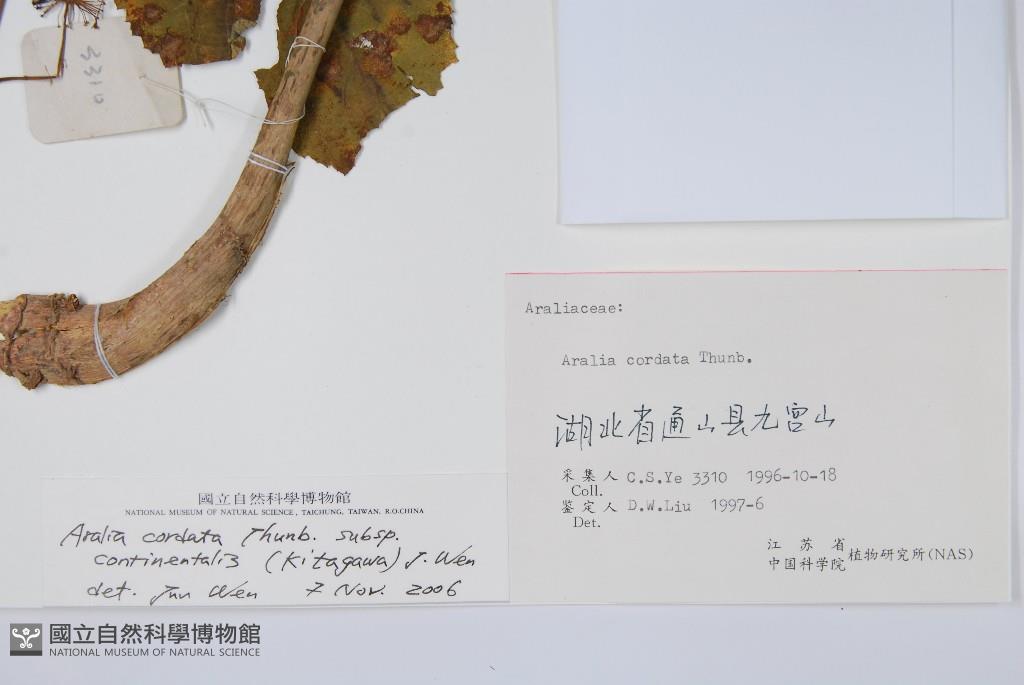 3310
Araliaceae:
Aralia cordata Thunb.
湖北省通山县九宫山
采集人 C.S.Ye 3310 1996-10-18
Coll.
鉴定人 D.W.Liu 1997-6
Det.
江苏省
中国科学院植物研究所(NAS)
國立自然科學博物館
NATIONAL MUSEUM OF NATURAL SCIENCE, TAICHUNG, TAIWAN, R.O.CHINA
Aralia cordata Thunb. subsp.
continentalis (Kitagawa) J. Wen
det. Jun Wen 7 Nov. 2006
國立自然科學博物館
NATIONAL MUSEUM OF NATURAL SCIENCE